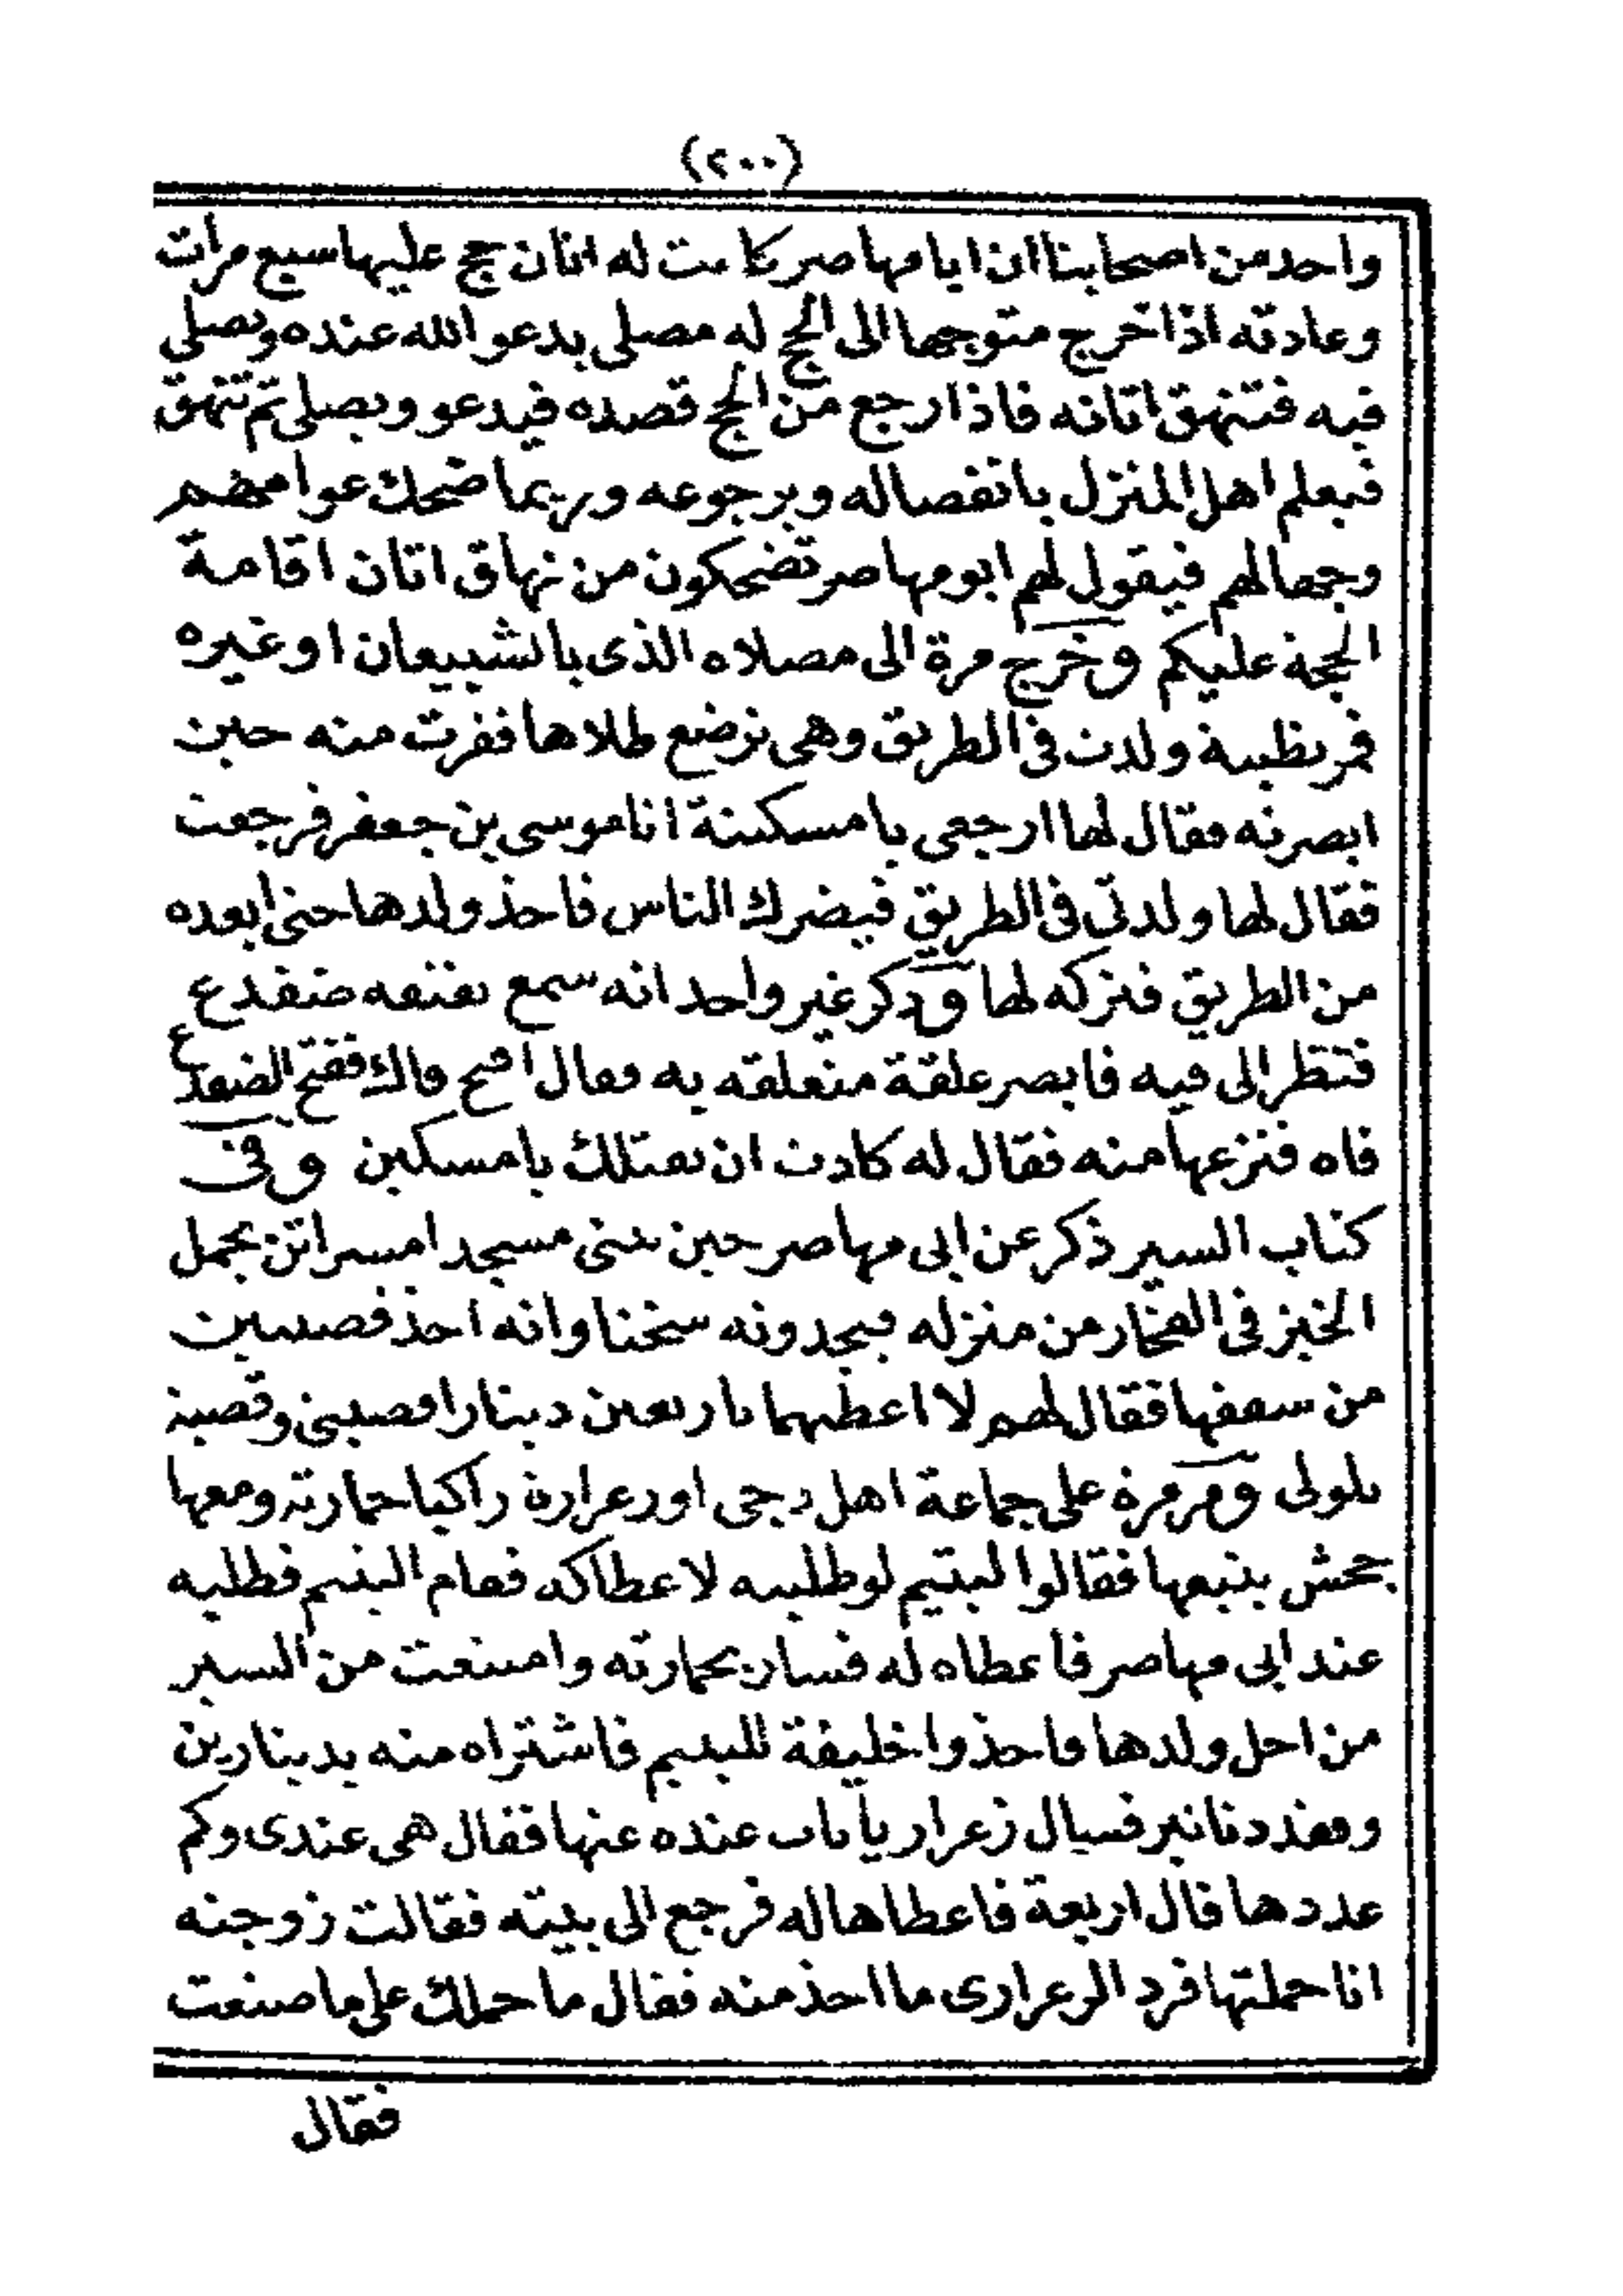 (٢٠٠)
واحد من اصحابنا ان ابا مهاصر كانت له اتان حج عليها سبع مرات
وعادته اذا خرج متوجها الى الحج له مصلى يدعو الله عنده ويصلي
فيه فتنهق اتانه فاذا رجع من الحج قصده فيدعو ويصلي ثم تنهق
فيعلم اهل المنزل بانفصاله وبرجوعه وربما ضحك عوامهم
وجهالهم فيقول لهم ابو مهاصر تضحكون من نهاق اتان اقامة
الحجة عليكم وخرج مرة الى مصلاه الذى بالشبيعان او غيره
فمر بظبية ولدت فى الطريق وهى ترضع طلاها ففرت منه حين
ابصرته فقال لها ارجعى يا مسكينة انا موسى بن جعفر فرجعت
فقال لها ولدتى فى الطريق فيضرك الناس فاخذ ولدها حتى ابعده
من الطريق فتركه لها وذكر غير واحد انه سمع نقنقه ضفدع
فنظر الى فيه فابصر علقة متعلقه به فقال افتح فاك ففتح الضفدع
فاه فنزعها منه فقال له كادت ان تقتلك يا مسكين وفى
كتاب السير ذكر عن ابى مهاصر حين بنى مسجد امسراتن يحمل
الخبز فى الفخار من منزله فيجدونه سخنا وانه اخذ قصبتين
من سعفها فقال لهم لا اعطيهما باربعين دينارا قصبتى وقصبة
بلولى ومر مرة على جماعة اهل دجى اورعرارة راكبا حمارته ومعها
جحش يتبعها فقالوا ليتيم لو طلبته لاعطاكه فقام اليتيم فطلبه
عند ابى مهاصر فاعطاه له فسار بحمارته وامتنعت من السير
من اجل ولدها فاخذوا خليفة لليتيم فاشتراه منه بدينارين
وفقد دنانير فسال زعرار يا باب عنده عنها فقال هى عندى وكم
عددها قال اربعة فاعطاها له فرجع الى بيته فقالت زوجته
انا حملتها فرد الزعرارى ما اخذ منه فقال ما حملك على ما صنعت
فقال